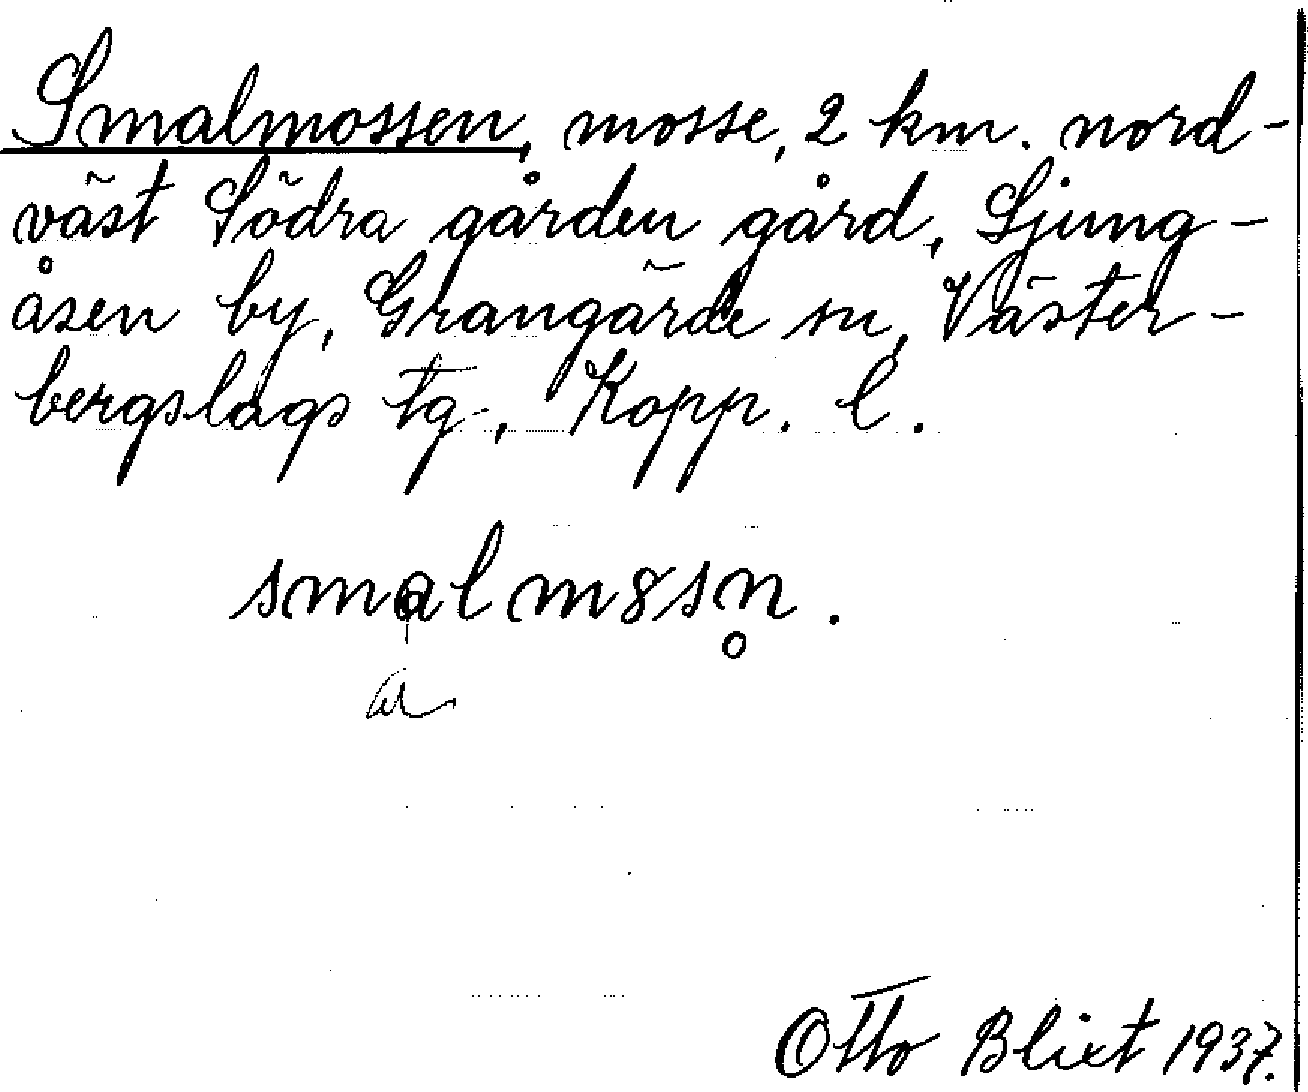 Smalmossen, mosse, 2 km. nord-
väst Södra gården gård, Ljung-
åsen by, Grangärde sn, Väster-
bergslags tg., Kopp. l.
smalm8sn̥.
a
Otto Blixt 1937.